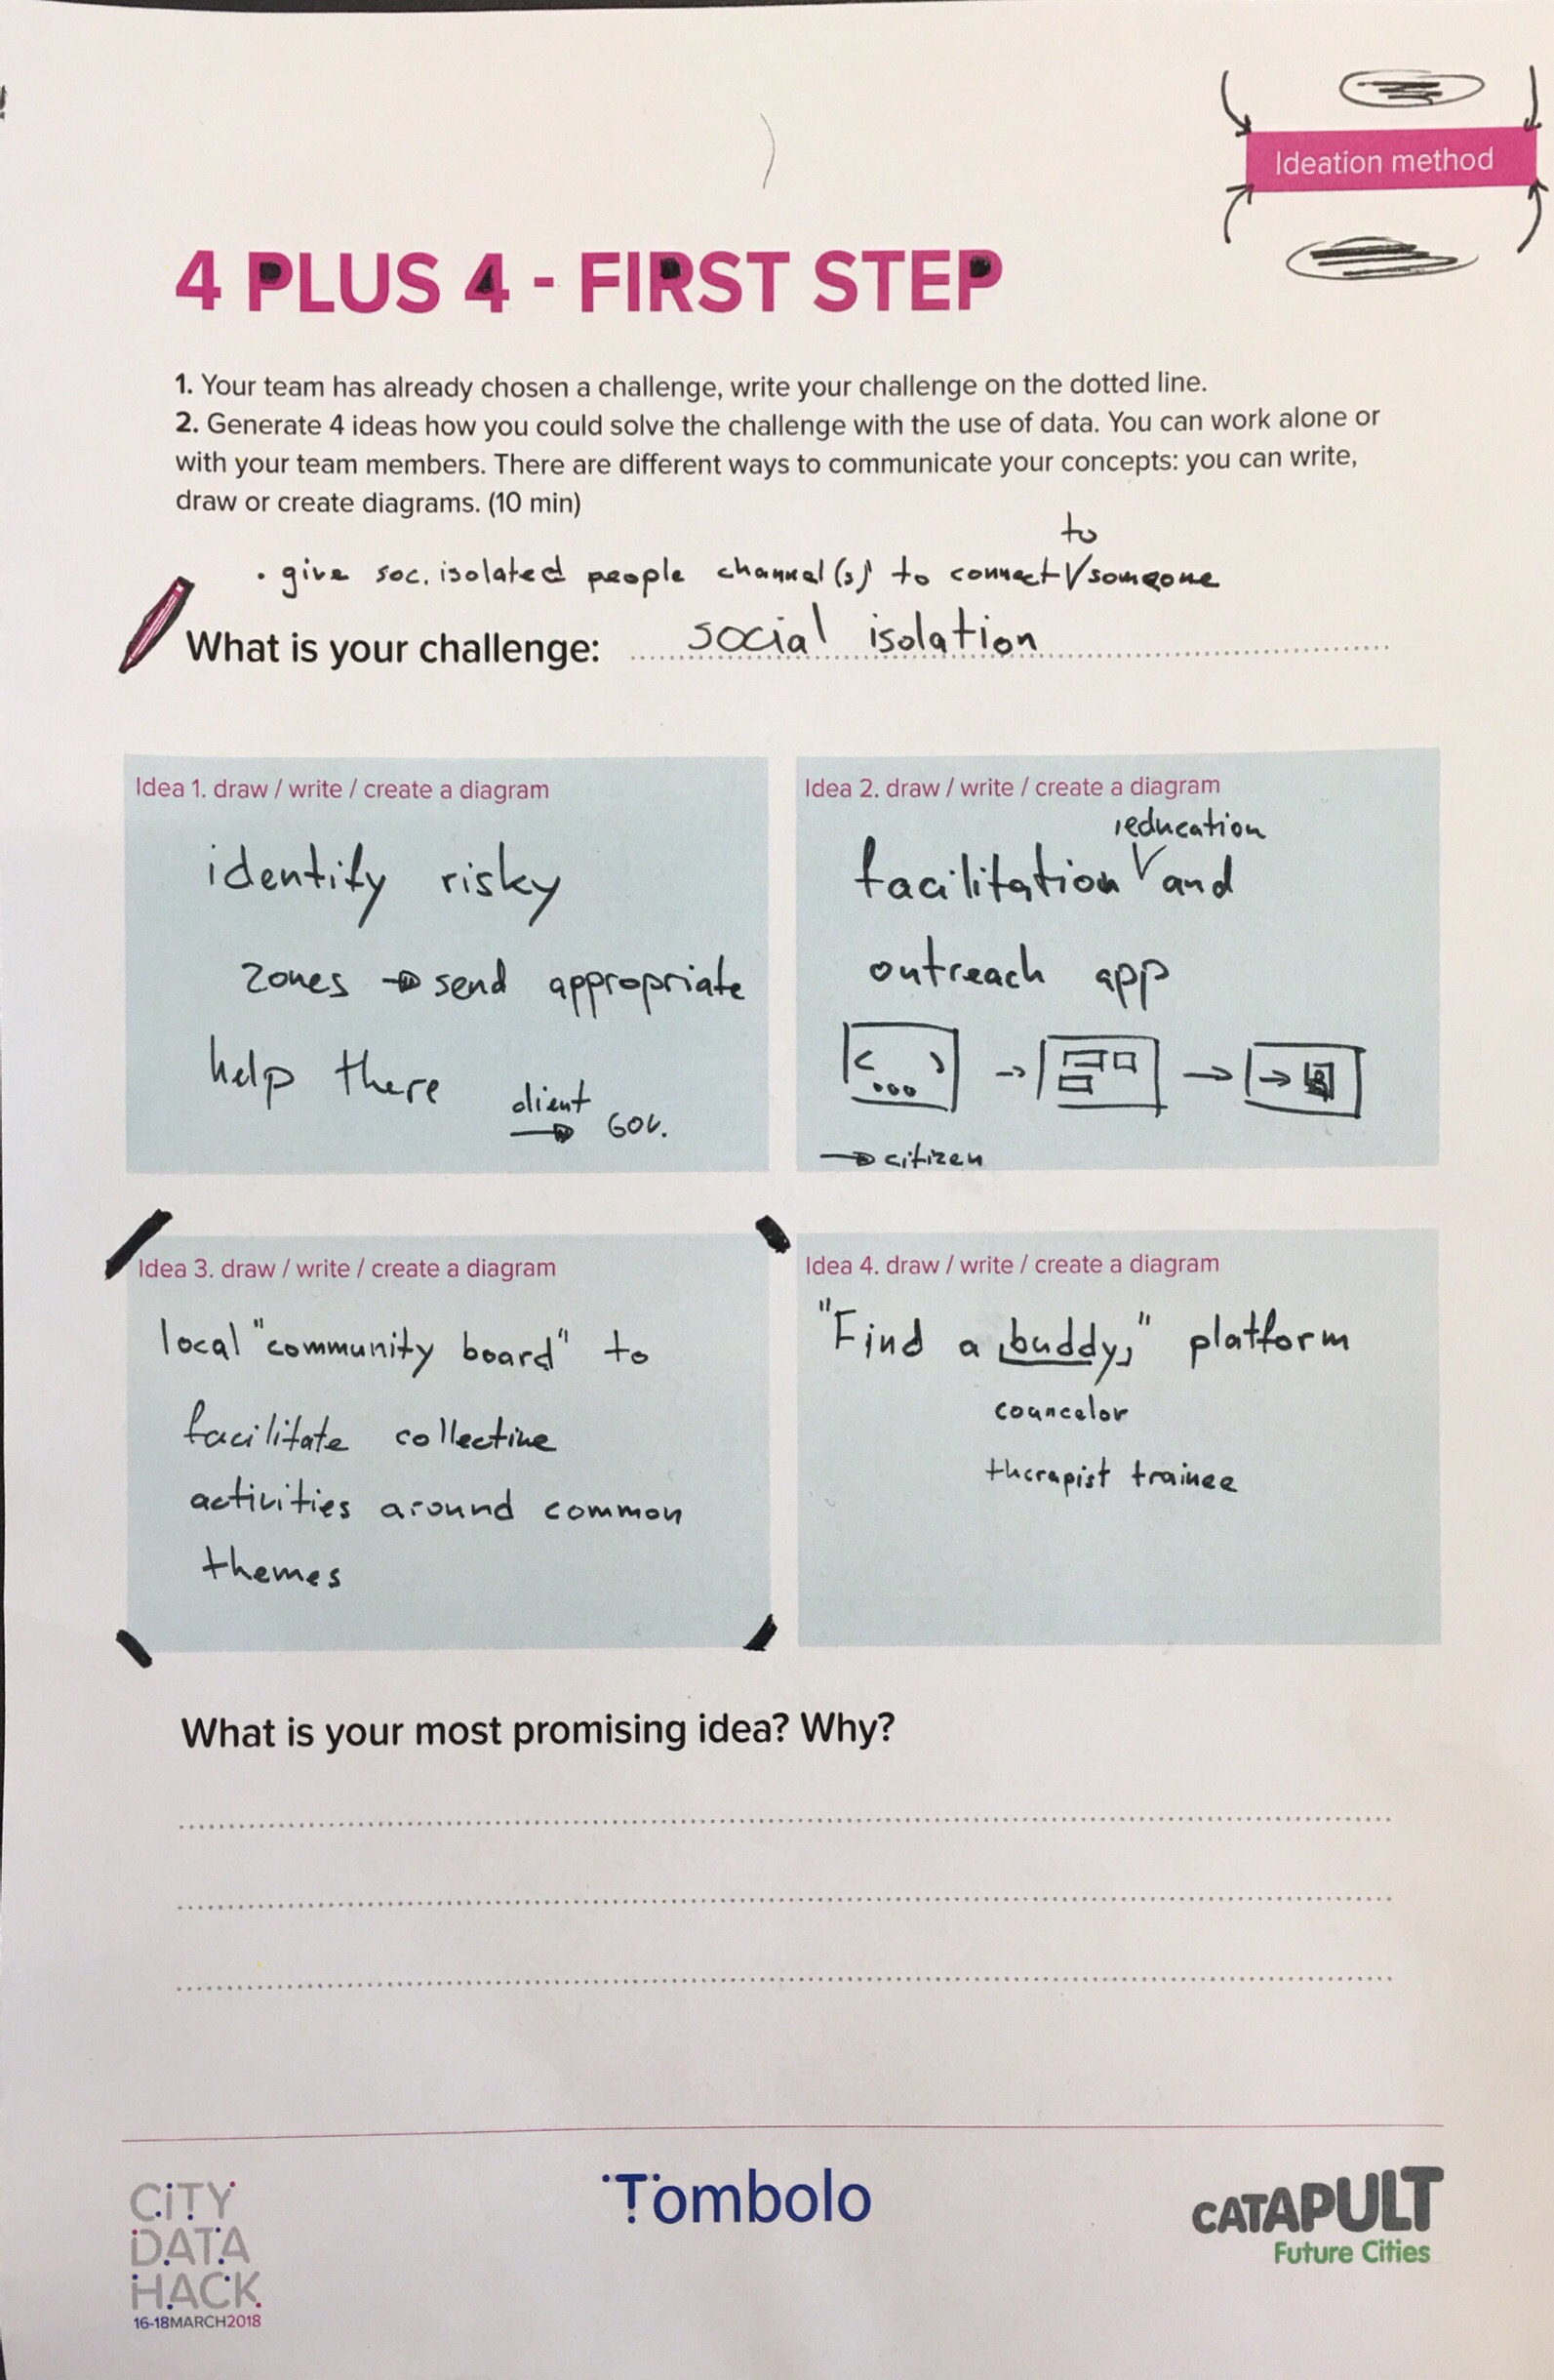 Ideation method
4 PLUS 4 - FIRST STEP
1. Your team has already chosen a challenge, write your challenge on the dotted line.
2. Generate 4 ideas how you could solve the challenge with the use of data. You can work alone or
with your team members. There are different ways to communicate your concepts: you can write,
draw or create diagrams. (10 min)
to
· give soc. isolated people channel(s) to connect someone
What is your challenge: social isolation
Idea 1. draw / write / create a diagram
identify risky
zones → send appropriate
help there
client
→ GOV.
Idea 2. draw / write / create a diagram
, education
facilitation and
outreach app
< ... >
→ citizen
Idea 3. draw / write / create a diagram
local "community board" to
facilitate collective
activities around common
themes
Idea 4. draw / write / create a diagram
"Find a buddy" platform
councelor
therapist trainee
What is your most promising idea? Why?
CiTY
DATA
HACK
16-18MARCH2018
Tombolo
CATAPULT
Future Cities